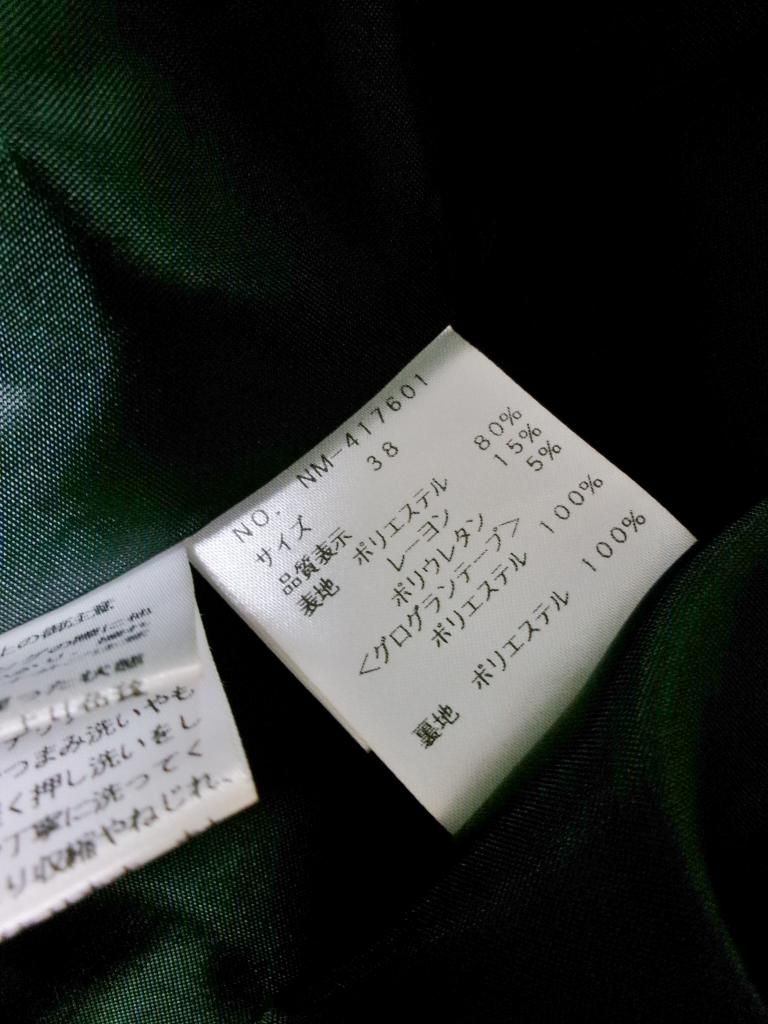 NO. NM-417601
サイズ 38
品質表示
表地 ポリエステル 80%
レーヨン 15%
ポリウレタン 5%
<グログランテープ>
ポリエステル 100%
裏地 ポリエステル 100%
った状態
つまみ洗いやも
く押し洗いをし
丁寧に洗ってく
り収縮やねじれ、